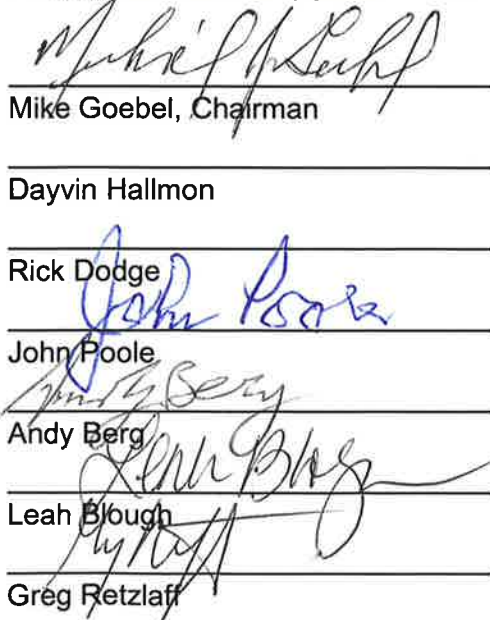 Mike Goebel, Chairman
Dayvin Hallmon
Rick Dodge
John Poole
John Poole
Andy Berg
Andy Berg
Leah Blough
Leah Blough
Greg Retzlaff